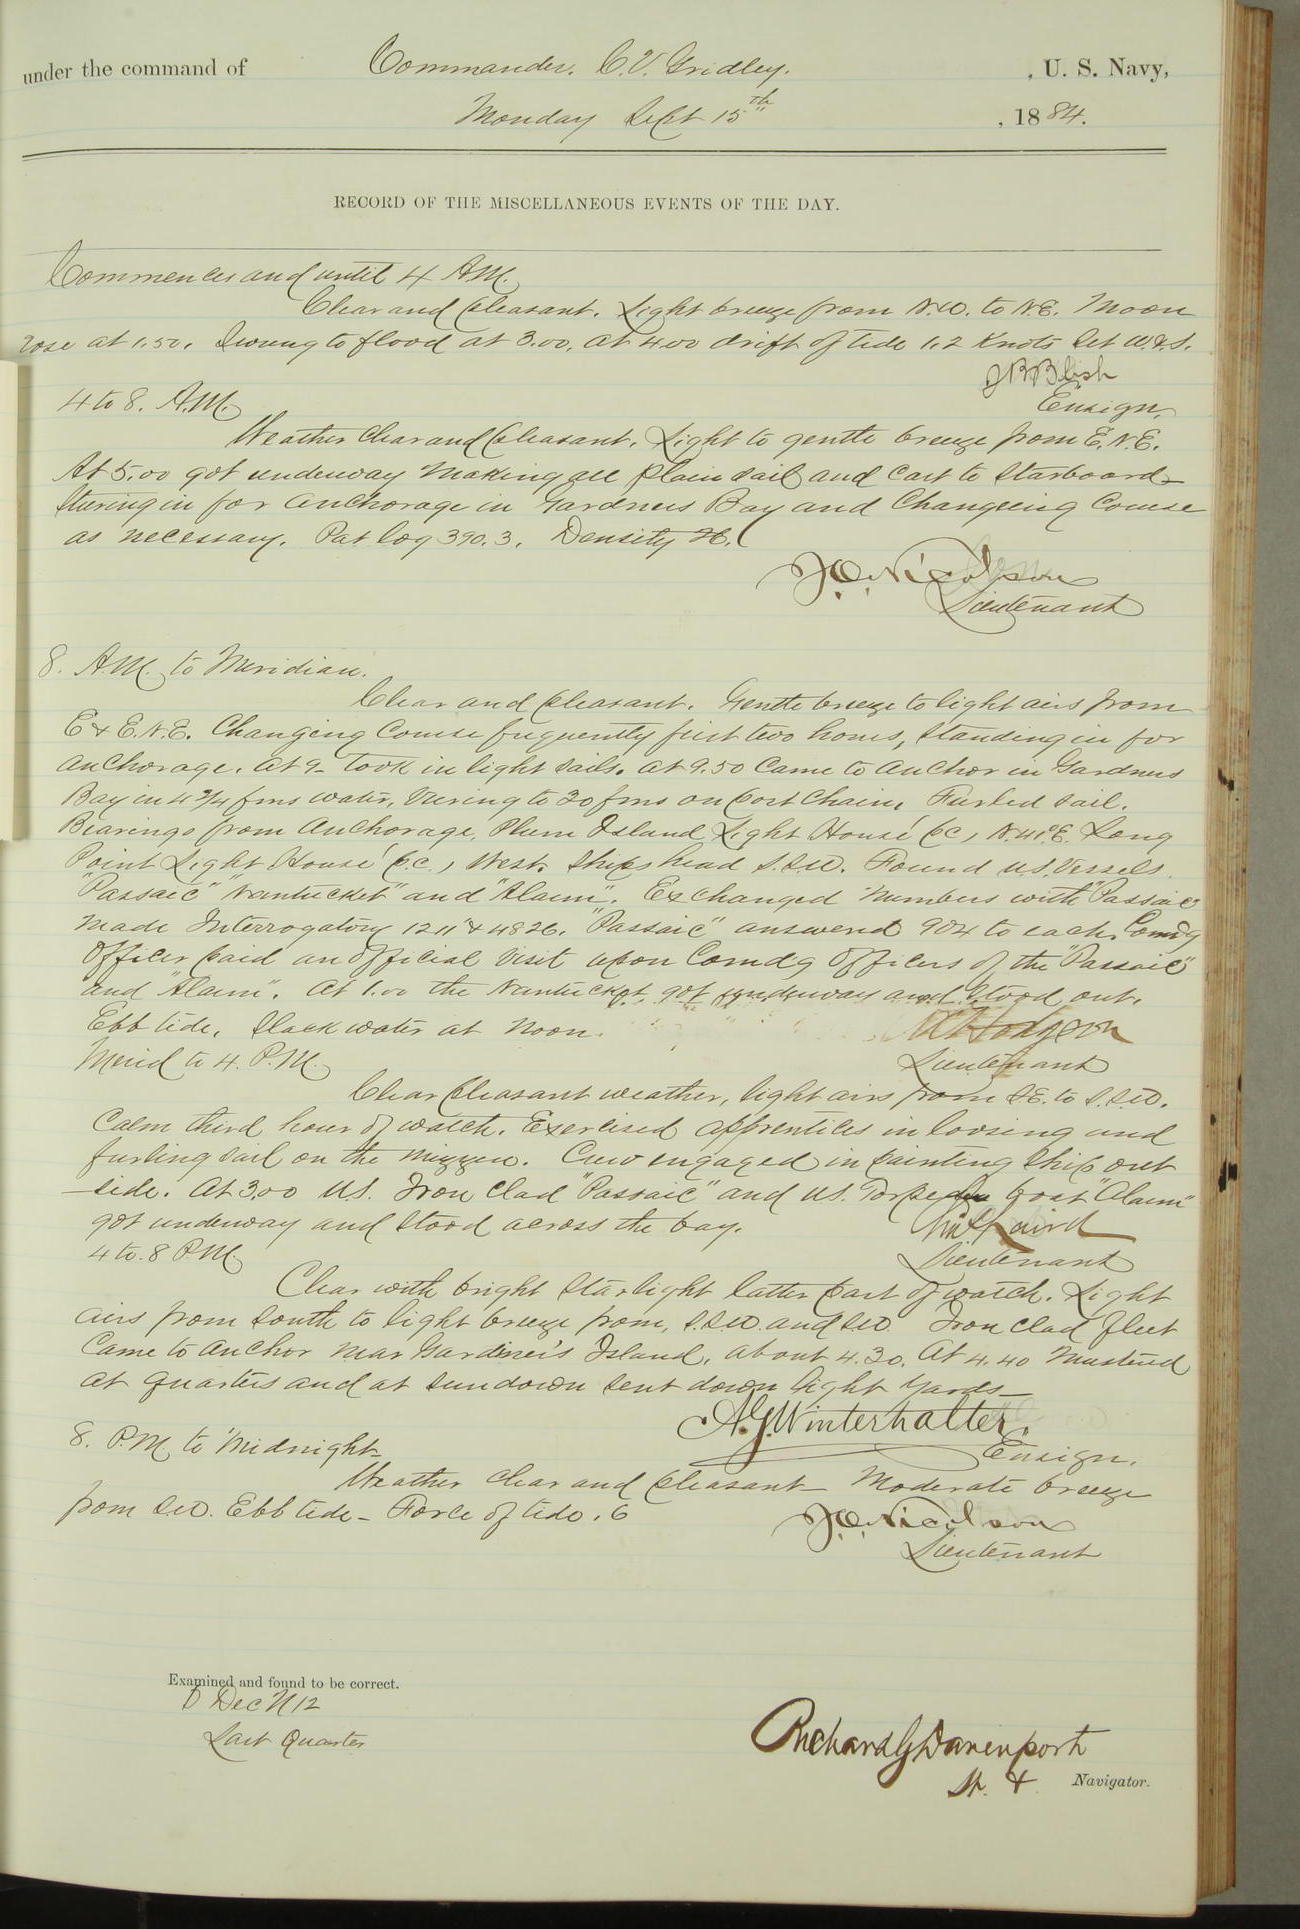 under the command of Commander. C.V. Gridley. , U. S. Navy,
Monday Sept 15th , 1884.
RECORD OF THE MISCELLANEOUS EVENTS OF THE DAY.
Commences and until 4 A.M.
Clear and pleasant. Light breeze from N.W. to N.E. Moon
rose at 1.50. Swung to flood at 3.00. At 4.00 drift of tide 1.2 Knots Set W.&S.
J B Blish
Ensign.
4 to 8. A.M.
Weather clear and pleasant. Light to gentle breeze from E.N.E.
At 5.00 got underway making all plain sail and cast to Starboard
Steering in for anchorage in Gardners Bay and Changeing Course
as necessary. Pat log 390.3. Density
J.O. Nicolson
Lieutenant
8. A.M. to Meridian.
Clear and pleasant. Gentle breeze to light airs from
E & E.N.E. Changing Course frequently first two hours, Standing in for
anchorage. At 9- took in light sails. At 9.50 Came to anchor in Gardners
Bay in 4 3/4 fms water, Vering to 30 fms on port Chain, Furled sail.
Bearings from Anchorage, Plum Island Light House p.c., N.41°E. Long
Point Light House p.c., West. Ships head S.S.W. Found U.S. Vessels
"Passaic" "Nantucket" and "Alarm". Exchanged Numbers with "Passaic"
made Interrogatory 1211 & 4826. "Passaic" answered 904 to each. Comdg
Officer paid an official visit upon Comdg Officers of the "Passaic"
and "Alarm". At 1.00 the Nantucket got underway and stood out.
Ebb tide. Slack water at noon.
A C Hodgson
Lieutenant
Merid to 4. P.M.
Clear pleasant weather, light airs from SE. to S.S.W.
Calm third hour of watch. Exercised apprentices in loosing and
furling sail on the mizzen. Crew engaged in painting ship out
-side. At 3.00 U.S. Iron Clad "Passaic" and U.S. Torpedo boat "Alarm"
got underway and stood across the bay.
Laird
Lieutenant
4 to 8 P.M.
Clear with bright starlight latter part of watch. Light
airs from South to light breeze from, S.S.W. and S.W. Iron clad fleet
Came to anchor near Gardiner's Island, about 4.30. At 4.40 Mustered
at quarters and at sundown sent down light yards-
A.G. Winterhalter.
Ensign.
8. P.M. to Midnight
Weather clear and pleasant- Moderate breeze
from S.W. Ebb tide- Force of tide .6
J.O. Nicolson
Lieutenant
Examined and found to be correct.
Dec N 12
Last Quarter
Richard G Davenport
Lt. & Navigator.